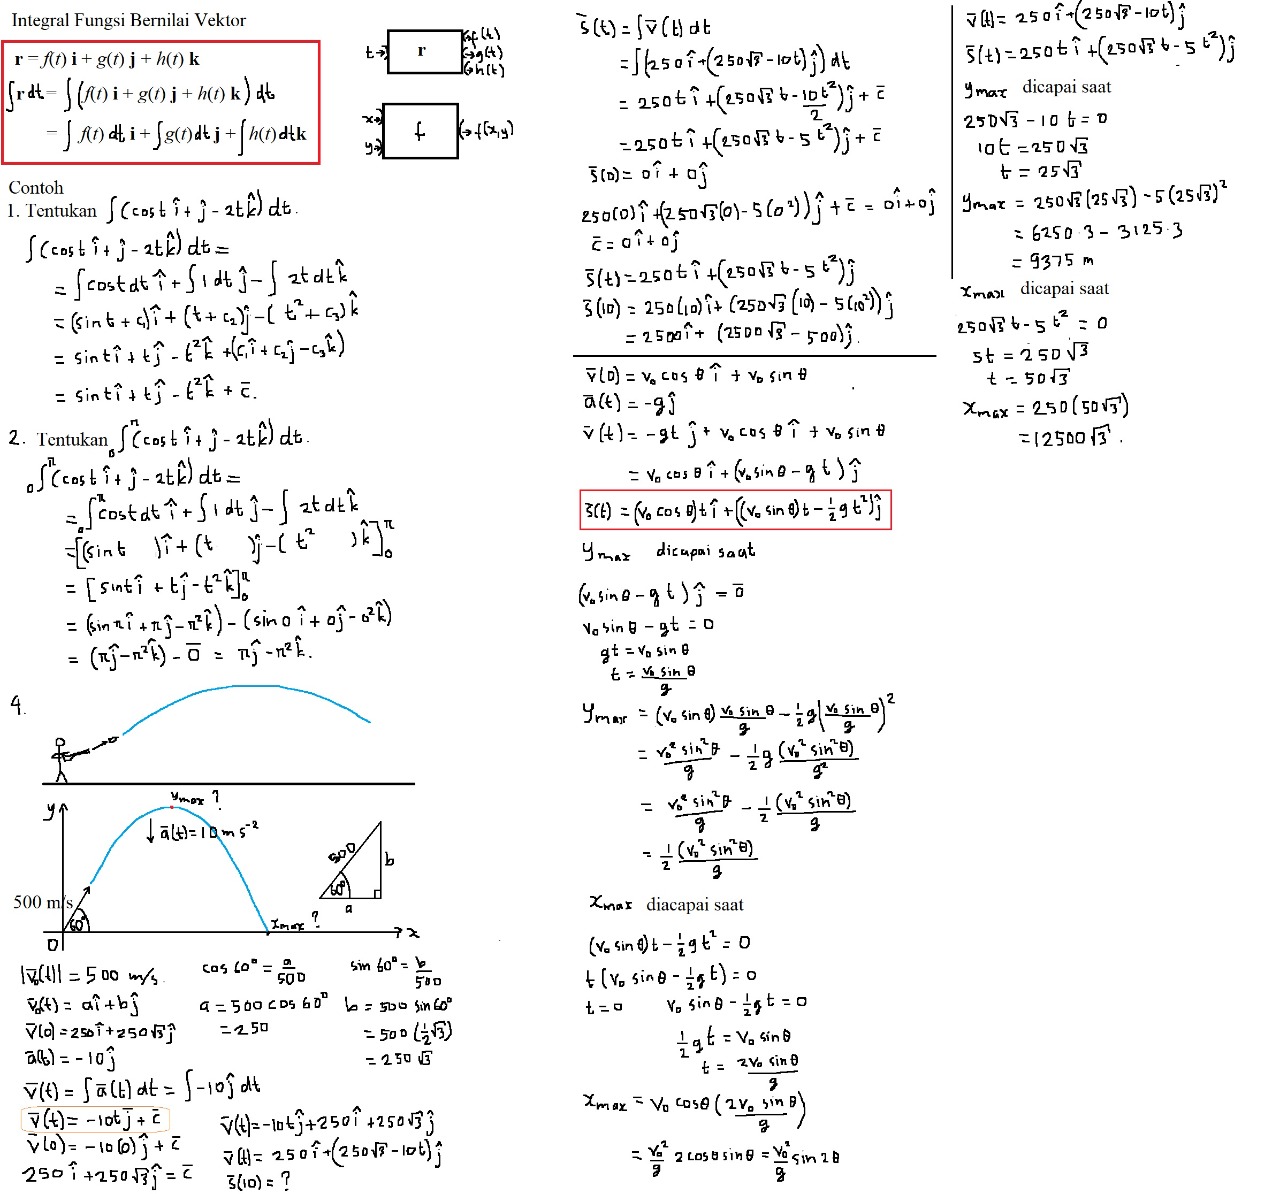 Integral Fungsi Bernilai Vektor
r = f(t) i + g(t) j + h(t) k
∫r dt = ∫(f(t) i + g(t) j + h(t) k) dt
= ∫ f(t) dt i + ∫g(t)dt j + ∫h(t)dt k
t r f(t)
g(t)
h(t)
x f f(x,y)
y
Contoh
1. Tentukan ∫(cos t î + ĵ - 2t k̂) dt.
∫(cos t î + ĵ - 2t k̂) dt =
= ∫cos t dt î + ∫1 dt ĵ - ∫ 2t dt k̂
= (sin t + c₁)î + (t + c₂)ĵ - (t² + c₃)k̂
= sin t î + t ĵ - t² k̂ + (c₁î + c₂ĵ - c₃k̂)
= sin t î + t ĵ - t² k̂ + c̄.
2. Tentukan ₀∫^π (cos t î + ĵ - 2t k̂) dt.
₀∫^π (cos t î + ĵ - 2t k̂) dt =
= ₀∫^π cos t dt î + ∫1 dt ĵ - ∫ 2t dt k̂
= [(sin t )î + (t )ĵ - (t² )k̂]₀^π
= [sin t î + t ĵ - t² k̂]₀^π
= (sin π î + π ĵ - π² k̂) - (sin 0 î + 0 ĵ - 0² k̂)
= (π ĵ - π² k̂) - 0̄ = π ĵ - π² k̂.
4.
y
y max ?
ā(t) = 10 m s⁻²
500 m/s
60°
0
x max ?
x
500
60°
a
b
|v̄₀(t)| = 500 m/s
v̄₀(t) = aî + bĵ
v̄(0) = 250î + 250√3 ĵ
ā(t) = -10 ĵ
cos 60° = a/500
a = 500 cos 60°
= 250
sin 60° = b/500
b = 500 sin 60°
= 500 (½√3)
= 250 √3
v̄(t) = ∫ā(t) dt = ∫-10 ĵ dt
v̄(t) = -10t j̄ + c̄
v̄(0) = -10(0) ĵ + c̄
250 î + 250√3 ĵ = c̄
v̄(t) = -10t ĵ + 250 î + 250√3 ĵ
v̄(t) = 250 î + (250√3 - 10t) ĵ
s̄(10) = ?
s̄(t) = ∫v̄(t) dt
= ∫(250 î + (250√3 - 10t) ĵ) dt
= 250t î + (250√3 t - 10t²/2) ĵ + c̄
= 250t î + (250√3 t - 5 t²) ĵ + c̄
s̄(0) = 0 î + 0 ĵ
250(0) î + (250√3(0) - 5(0²)) ĵ + c̄ = 0 î + 0 ĵ
c̄ = 0 î + 0 ĵ
s̄(t) = 250t î + (250√3 t - 5 t²) ĵ
s̄(10) = 250(10) î + (250√3 (10) - 5(10²)) ĵ
= 2500 î + (2500√3 - 500) ĵ.
v̄(0) = v₀ cos θ î + v₀ sin θ
ā(t) = -g ĵ
v̄(t) = -gt ĵ + v₀ cos θ î + v₀ sin θ
= v₀ cos θ î + (v₀ sin θ - gt) ĵ
s̄(t) = (v₀ cos θ)t î + ((v₀ sin θ)t - ½ g t²) ĵ
y max dicapai saat
(v₀ sin θ - gt) ĵ = 0̄
v₀ sin θ - gt = 0
gt = v₀ sin θ
t = v₀ sin θ/g
y max = (v₀ sin θ) v₀ sin θ/g - ½ g(v₀ sin θ/g)²
= v₀² sin²θ/g - ½ g (v₀² sin²θ)/g²
= v₀² sin²θ/g - ½ (v₀² sin²θ)/g
= ½ (v₀² sin²θ)/g
x max diacapai saat
(v₀ sin θ)t - ½ g t² = 0
t(v₀ sin θ - ½ g t) = 0
t = 0 v₀ sin θ - ½ g t = 0
½ g t = v₀ sin θ
t = 2v₀ sin θ/g
x max = v₀ cos θ (2v₀ sin θ/g)
= v₀²/g 2 cos θ sin θ = v₀²/g sin 2θ
v̄(t) = 250 î + (250√3 - 10t) ĵ
s̄(t) = 250t î + (250√3 t - 5 t²) ĵ
y max dicapai saat
250√3 - 10 t = 0
10t = 250√3
t = 25√3
y max = 250√3 (25√3) - 5(25√3)²
= 6250·3 - 3125·3
= 9375 m
x max dicapai saat
250√3 t - 5 t² = 0
5t = 250√3
t = 50√3
x max = 250(50√3)
= 12500√3.